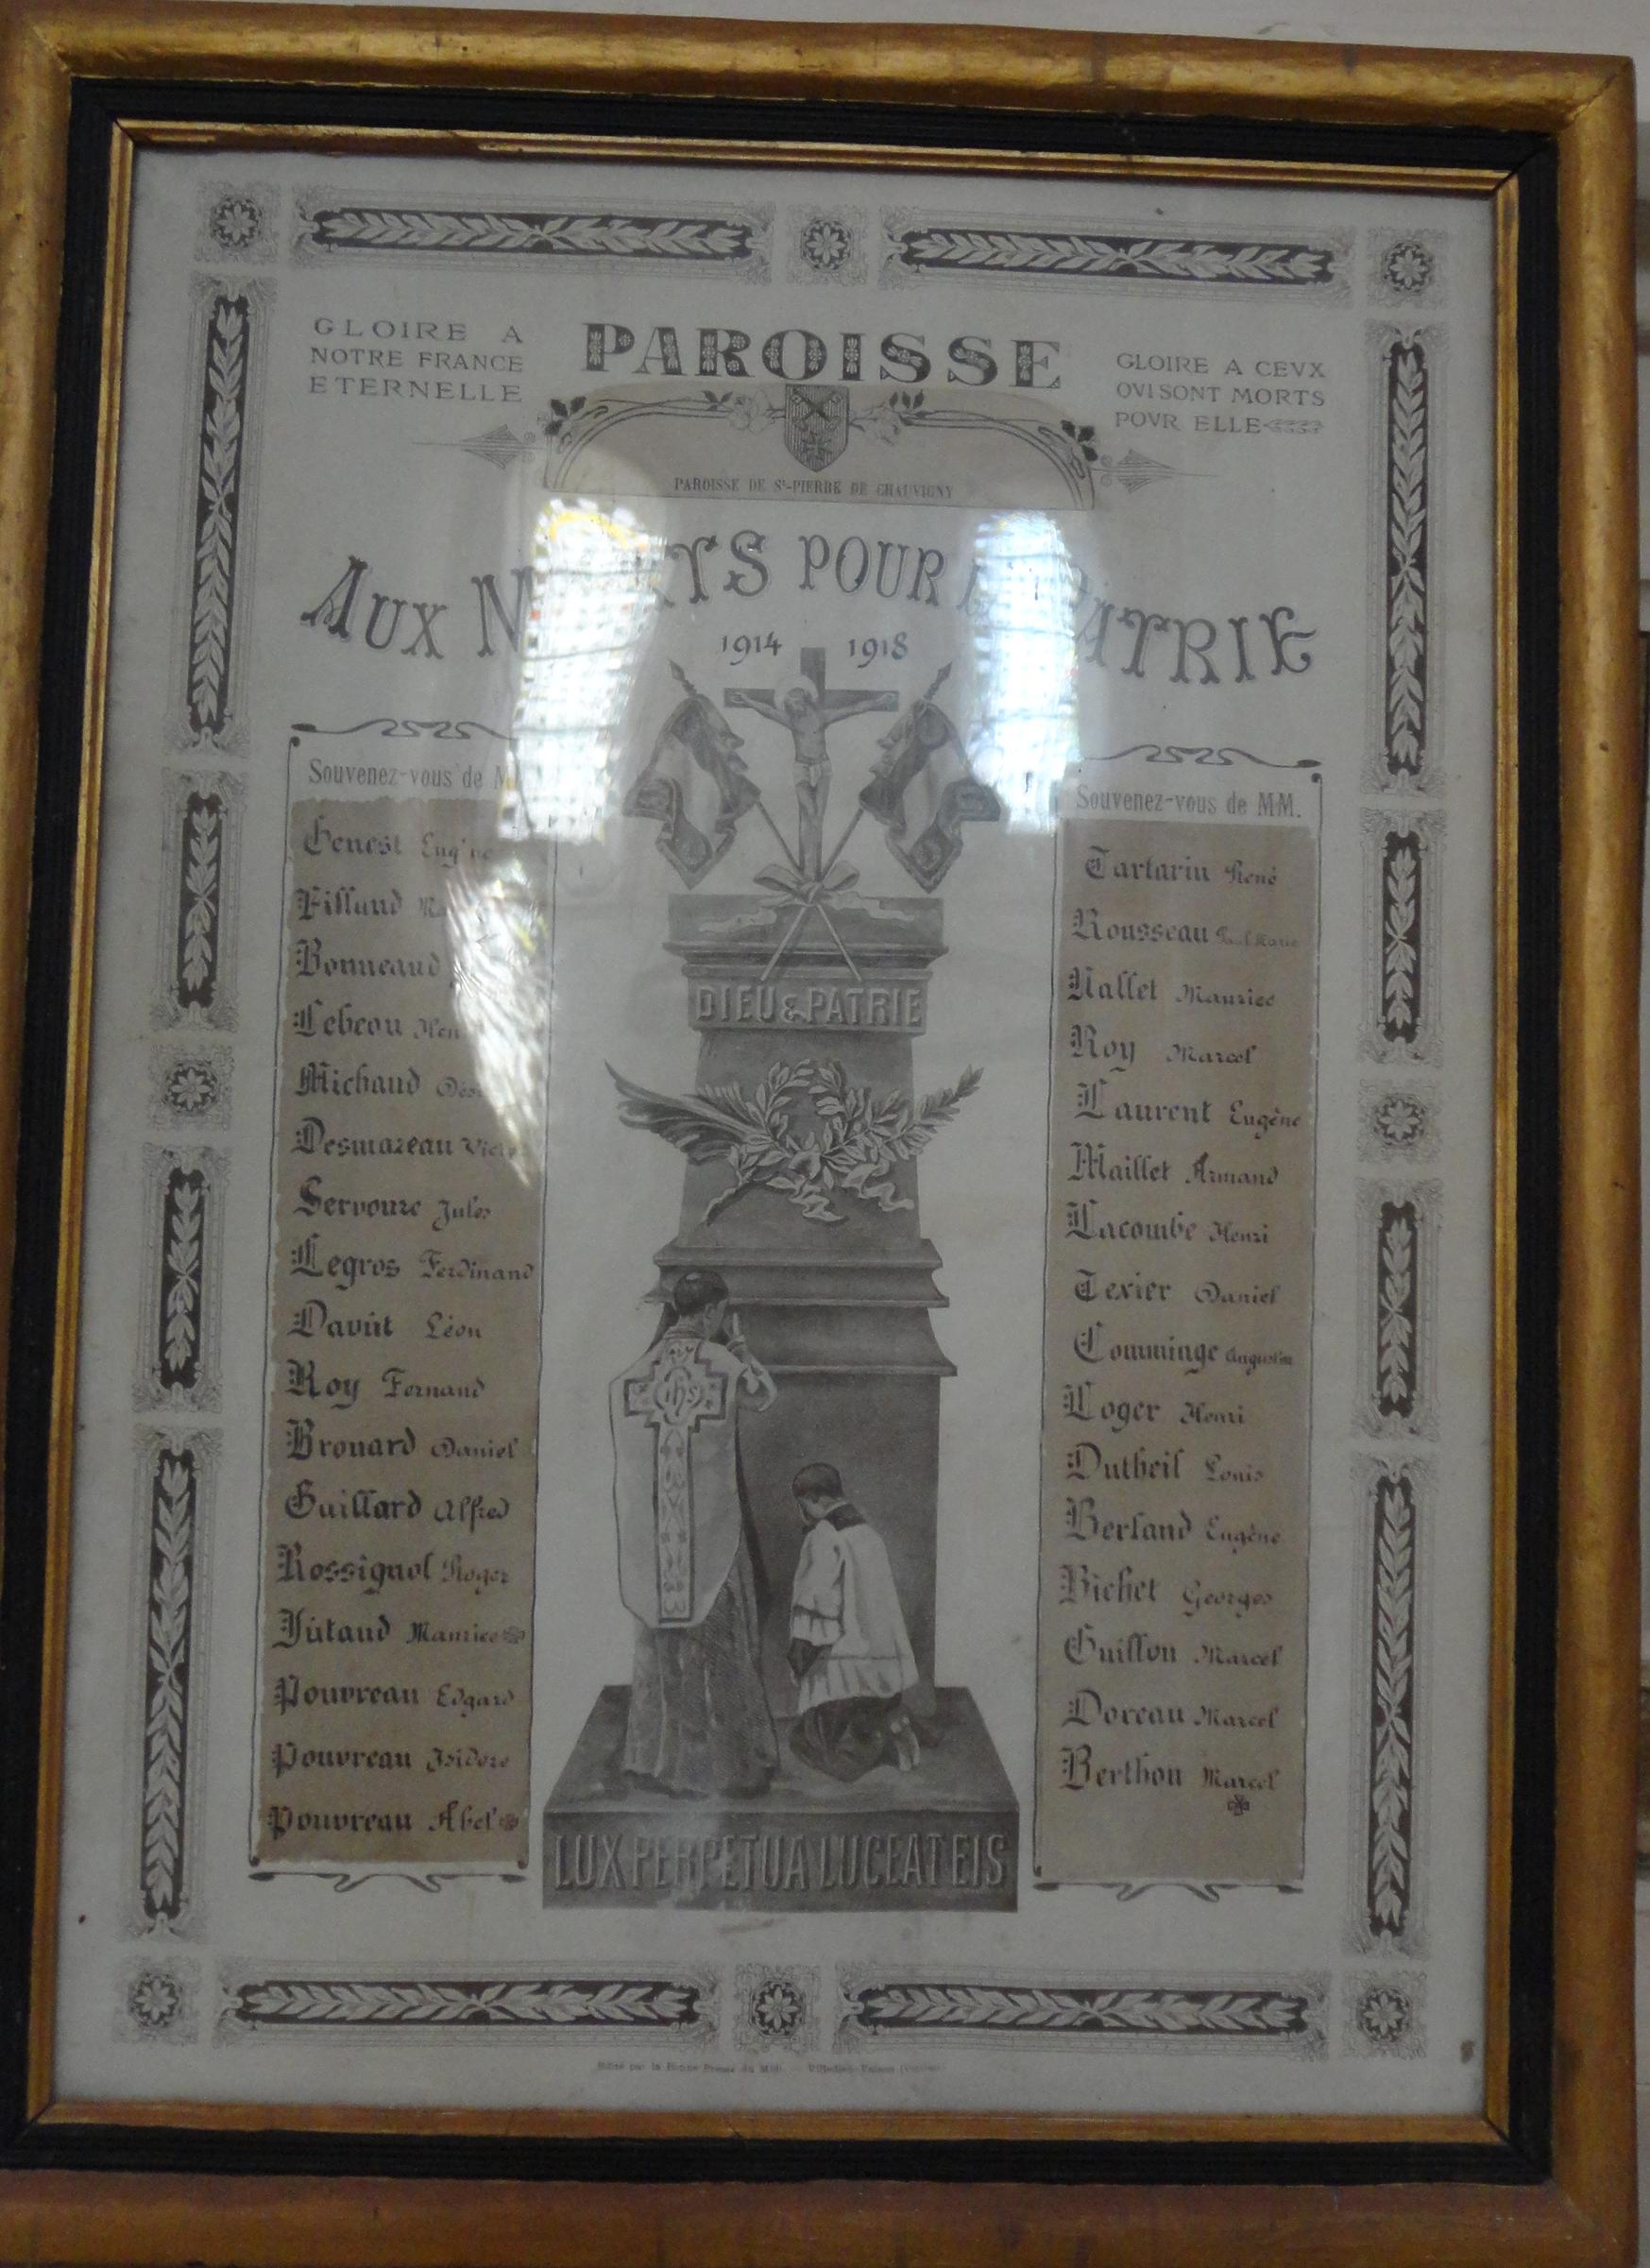 GLOIRE A
NOTRE FRANCE
ETERNELLE
PAROISSE
GLOIRE A CEVX
QVI SONT MORTS
POVR ELLE
PAROISSE DE St-PIERRE DE CHAUVIGNY
AUX MORTS POUR LA PATRIE
1914 1918
Souvenez-vous de
Genest Eugène
Fillaud
Bonneaud
Lebeau
Michaud
Desmazeau
Servouze Jules
Legros Ferdinand
Davût Léon
Roy Fernand
Brouard Daniel
Guillard Alfred
Rossignol Roger
Jutaud Maurice
Pouvreau Edgard
Pouvreau Isidore
Pouvreau Abel
Souvenez-vous de MM.
Tartarin René
Rousseau
Nallet Maurice
Roy Marcel
Laurent Eugène
Maillet Armand
Lacombe Henri
Texier Daniel
Comminge Augustin
Loger Henri
Dutheil Louis
Berland Eugène
Bichet Georges
Guillon Marcel
Doreau Marcel
Berthon Marcel
DIEU & PATRIE
ihs
LUX PERPETUA LUCEAT EIS